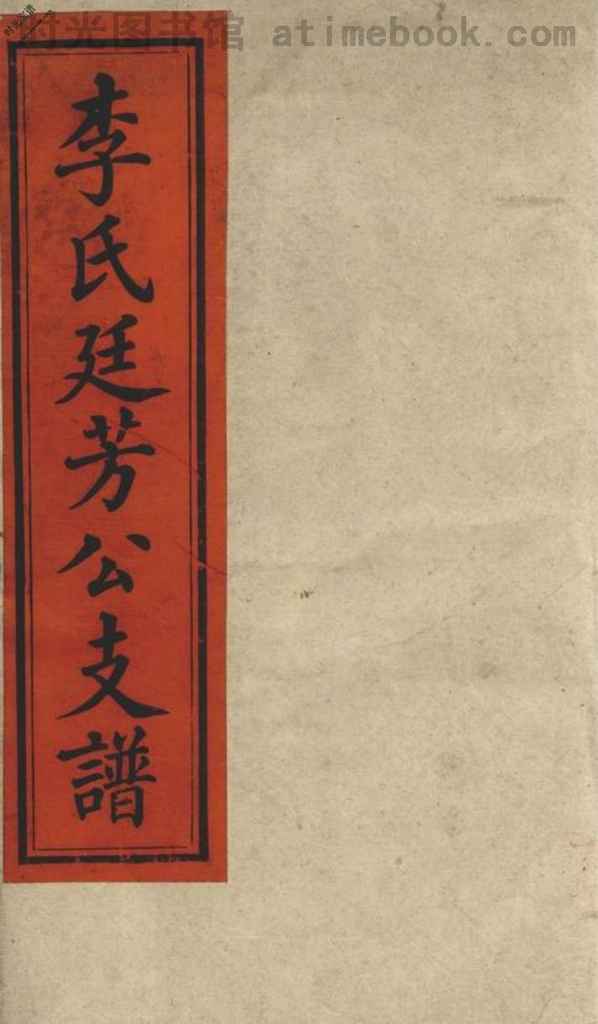 时光图书馆 atimebook.com
李氏廷芳公支譜